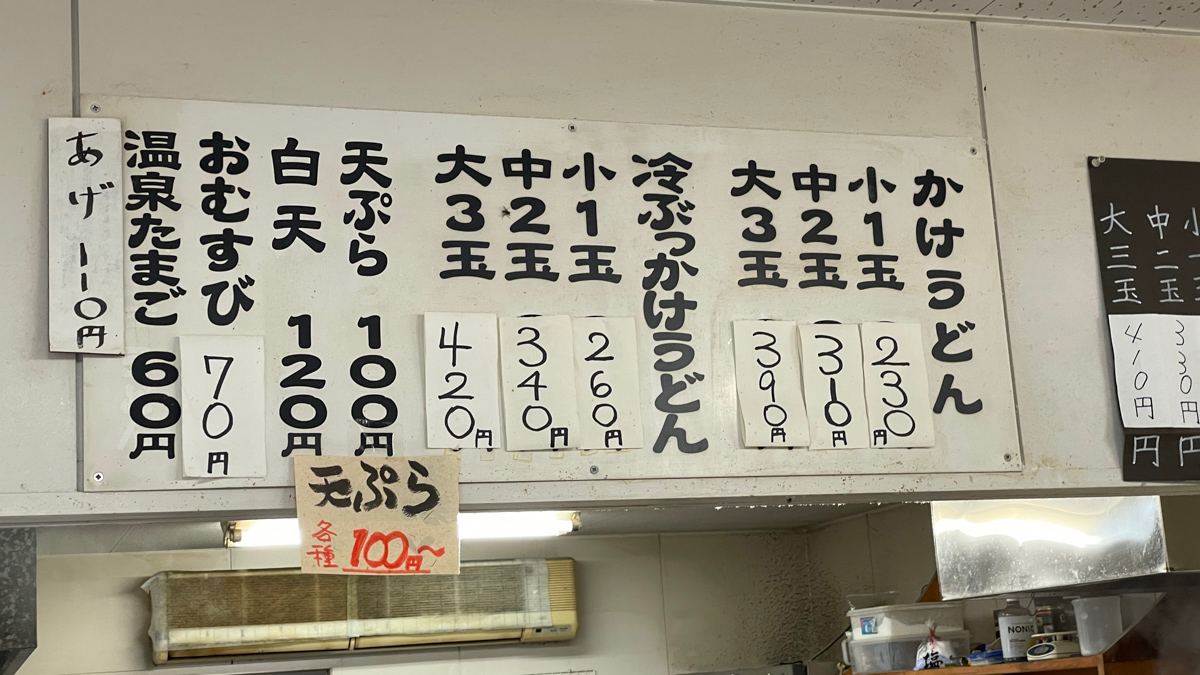 かけうどん
小1玉 230円
中2玉 310円
大3玉 390円
冷ぶっかけうどん
小1玉 260円
中2玉 340円
大3玉 420円
天ぷら 100円
白天 120円
おむすび 70円
温泉たまご 60円
あげ 110円
天ぷら
各種 100円〜
小
中二玉 330円
円
大三玉 410円
円
NONIO
塩